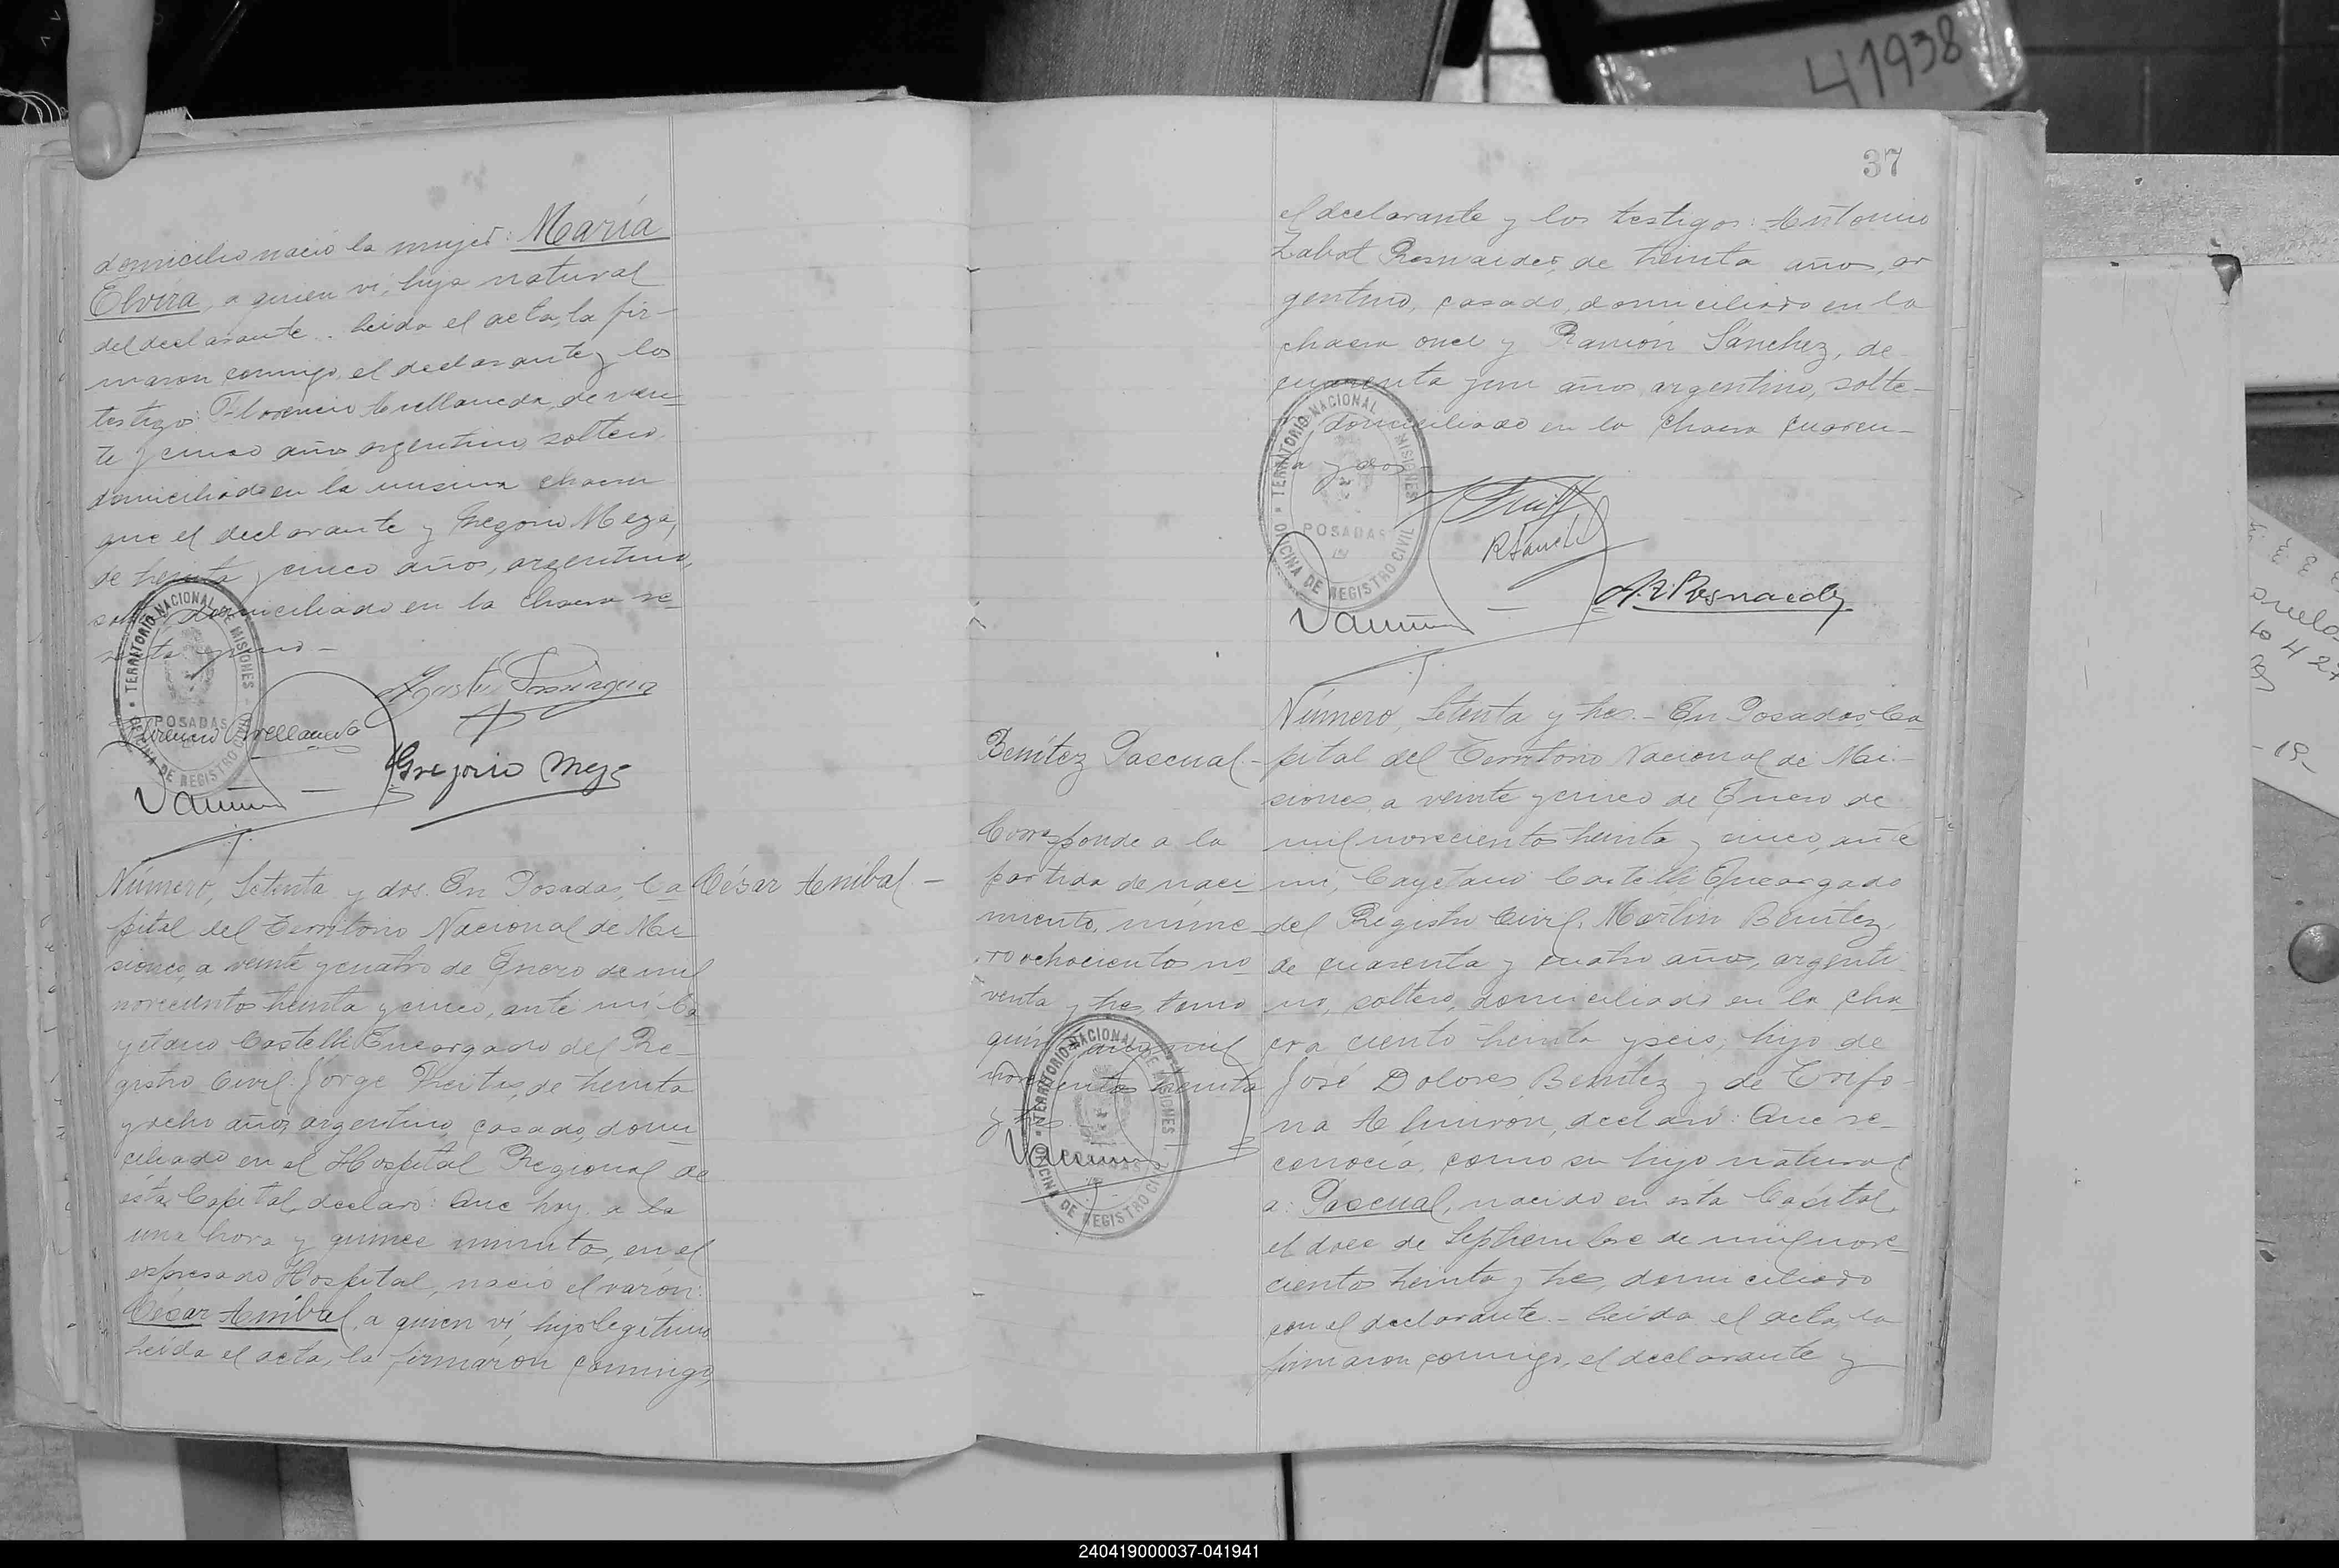 41938
domicilio nació la mujer: María
Elvira, a quien vi, hija natural
del declarante. Leida el acta, la fir-
maron conmigo, el declarante y los
testigos: Florencio Avellaneda, de vein-
te y cinco años argentino, soltero,
domiciliado en la misma chacra
que el declarante y Gregorio Meza,
de treinta y cinco años, argentino,
domiciliado en la chacra se-
Florencio Avellaneda
Gregorio Meza
TERRITORIO NACIONAL DE MISIONES
POSADAS
OFICINA DE REGISTRO CIVIL
César Aníbal. -
Número, Setenta y dos. En Posadas, Ca
pital del Territorio Nacional de Mi
siones, a veinte y cuatro de Enero de mil
novecientos treinta y cinco, ante mí Ca
yetano Castelli Encargado del Re-
gistro Civil. Jorge de treinta
y ocho años, argentino, casado, domi-
ciliado en el Hospital Regional de
ésta Capital, declaró: Que hoy, a la
una hora y quince minutos, en el
expresado Hospital, nació el varón:
César Aníbal, a quien vi, hijo legitimo
Leida el acta, la firmaron conmigo,
37
el declarante y los testigos: Antonio
Resnaider, de treinta años, ar
gentino, casado, domiciliado en la
chacra once y Ramón Sánchez, de
cuarenta y un años, argentino, solte-
domiciliado en la chacra cuaren-
ta y dos.
TERRITORIO NACIONAL DE MISIONES
POSADAS
OFICINA DE REGISTRO CIVIL
Benítez Pascual. -
Corresponde a la
partida de naci
miento, núme
ro ochocientos no
venta y tres, tomo
mil
novecientos treinta
y tres
TERRITORIO NACIONAL DE MISIONES
POSADAS
OFICINA DE REGISTRO CIVIL
Número, Setenta y tres. - En Posadas, Ca
pital del Territorio Nacional de Mi-
siones, a veinte y cinco de Enero de
mil novecientos treinta y cinco, ante
mí, Cayetano Castelli Encargado
del Registro Civil. Martín Benítez,
de cuarenta y cuatro años, argenti-
no, soltero, domiciliado en la cha-
cra ciento treinta y seis, hijo de
José Dolores Benítez y de Trifo-
na Almirón, declaró: Que re-
conocía, como su hijo natural
a: Pascual, nacido en ésta Capital,
el doce de Septiembre de mil nove-
cientos treinta y tres, domiciliado
con el declarante. - Leida el acta, la
firmaron conmigo, el declarante y
240419000037-041941